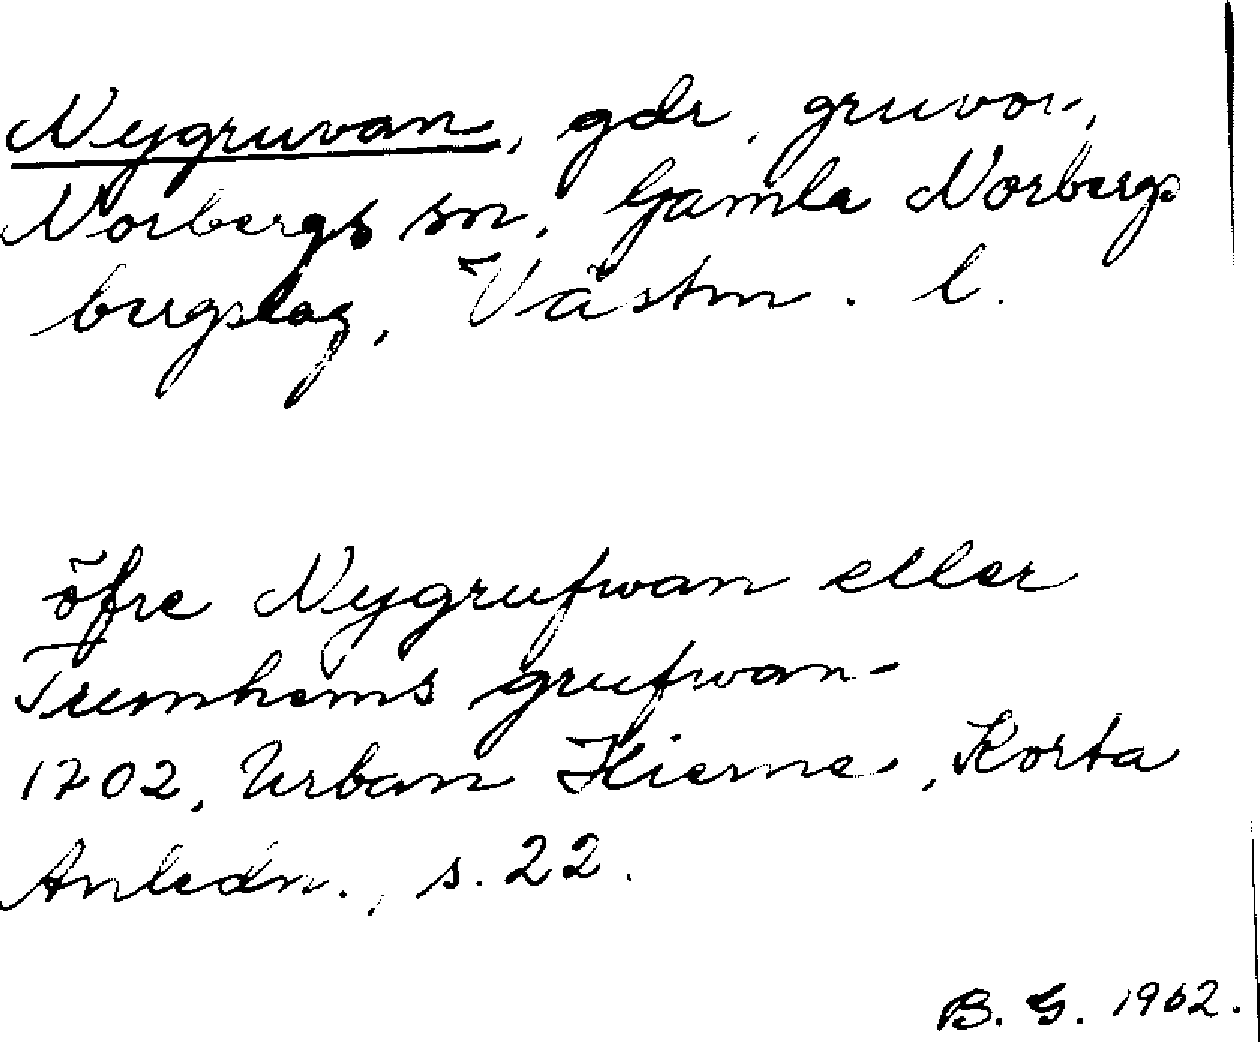 Nygruvan, gdr, gruvor,
Norbergs sn, Gamla Norbergs
bergslag, Västm. l.
öfre Nygrufwan eller
Trumhems grufwan-
1702, Urban Hierne, Korta
Anledn., s. 22.
B. G. 1962.